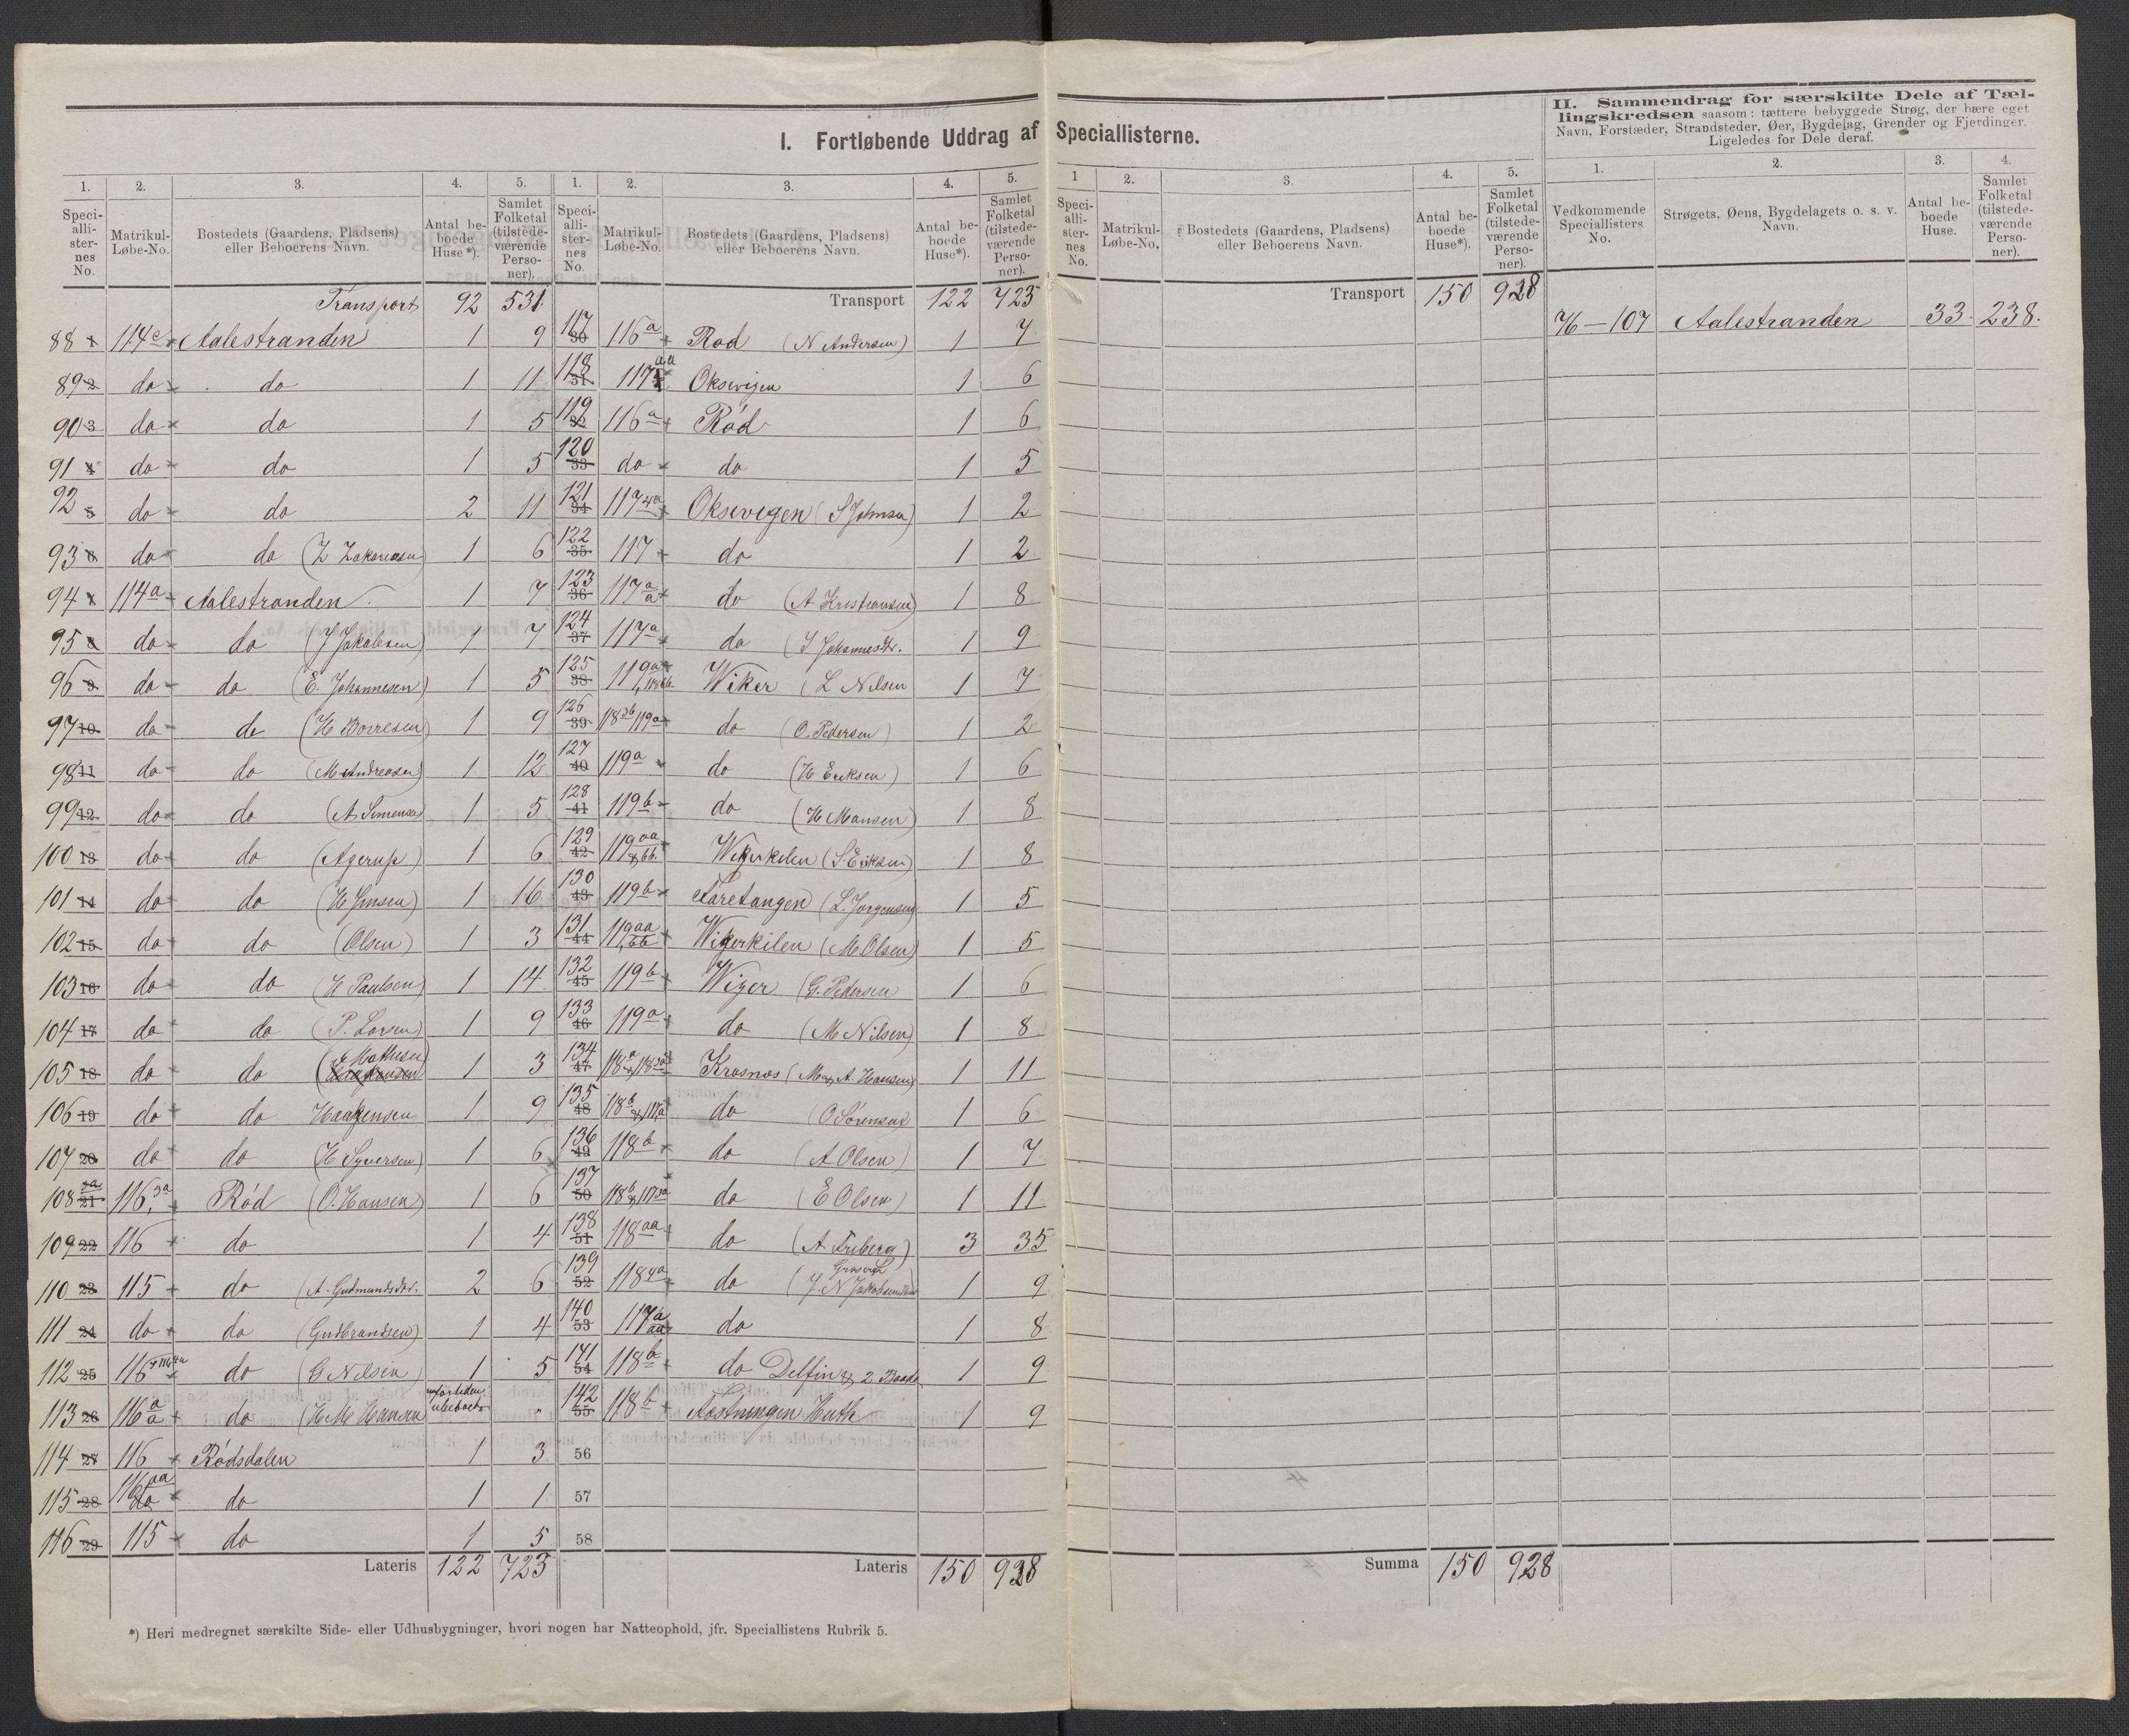 I. Fortløbende Uddrag af Speciallisterne.
II. Sammendrag for særskilte Dele af Tæl-
lingskredsen saasom: tættere bebyggede Strøg, der bære eget
Navn, Forstæder, Strandsteder, Øer, Bygdelag, Grender og Fjerdinger.
Ligeledes for Dele deraf.
1. 2. 3. 4. 5.
Speciallisternes No. Matrikul-Løbe-No. Bostedets (Gaardens, Pladsens) eller Beboerens Navn. Antal beboede Huse*). Samlet Folketal (tilstedeværende Personer).
Transport 92 531
88 114c Aalestranden 1 9
89 do do 1 11
90 do do 1 5
91 do do 1 5
92 do do 2 11
93 do do (Z Zakariasen) 1 6
94 114a Aalestranden 1 7
95 do do (J Jakobsen) 1 7
96 do do (E. Johannesen) 1 5
97 do do (H Borresen) 1 9
98 do do (M Andreasen) 1 12
99 do do (A Simensen) 1 5
100 do do (Agerup) 1 6
101 do do (H Jensen) 1 16
102 do do (Olsen) 1 3
103 do do (H Paulsen) 1 14
104 do do (P. Larsen) 1 9
105 do do (Mathisen) 1 3
106 do do Haagensen 1 9
107 do do (H Syversen) 1 6
108 116,3a Rød (O. Hansen) 1 6
109 116 do 1 4
110 115 do (A. Gudmundsdtr. 2 6
111 do do (Gudbrandsen) 1 4
112 116 do (G Nilsen) 1 5
113 116 a a do (H M Hansen ubeboet
114 116 Rødsdalen 1 3
115 116 aa do 1 1
116 115 do 1 5
Lateris 122 723
1. 2. 3. 4. 5.
Speciallisternes No. Matrikul-Løbe-No. Bostedets (Gaardens, Pladsens) eller Beboerens Navn. Antal beboede Huse*). Samlet Folketal (tilstedeværende Personer).
Transport 122 723
117 30 116a Rod (N Andersen) 1 7
118 31 117 aa Oksevigen 1 6
119 32 116a Rød 1 6
120 33 do do 1 5
121 34 117 4a Oksevigen (S Johnsen) 1 2
122 35 117 do 1 2
123 36 117 a a do (A Kristiansen) 1 8
124 37 117a do (S Johannesdtr. 1 9
125 38 119a Wiker (L Nilsen 1 7
126 39 118 3b 119a do (O. Pedersen) 1 2
127 40 119a do (H Eriksen) 1 6
128 41 119b do (H Mansen) 1 8
129 42 119 aa & bb. Wigerkilen (S. Eriksen) 1 8
130 43 119b Taretangen (L. Jorgensen) 1 5
131 44 119 aa bb Wigerkilen (M Olsen) 1 5
132 45 119b Wiger (G. Pedersen 1 6
133 46 119a do (M Nilsen) 1 8
134 47 118a Krosnes (M & A. Hansen) 1 11
135 48 118b do O Sørensen 1 6
136 49 118b do (A Olsen) 1 7
137 50 118b do (E Olsen) 1 11
138 51 118 aa do (A Friberg) 3 35
139 52 118 4a do 1 9
140 53 117 a aa do 1 8
141 54 118b do Delfin & 2 Baade 1 9
142 55 118b Huth 1 9
56
57
58
Lateris 150 928
1 2. 3. 4. 5.
Speciallisternes No. Matrikul-Løbe-No. Bostedets (Gaardens, Pladsens) eller Beboerens Navn. Antal beboede Huse*). Samlet Folketal (tilstedeværende Personer).
Transport 150 928
Summa 150 928
1. 2. 3. 4.
Vedkommende Speciallisters No. Strøgets, Øens, Bygdelagets o. s. v. Navn. Antal beboede Huse. Samlet Folketal (tilstedeværende Personer).
76—107 Aalestranden 33. 238.
*) Heri medregnet særskilte Side- eller Udhusbygninger, hvori nogen har Natteophold, jfr. Speciallistens Rubrik 5.